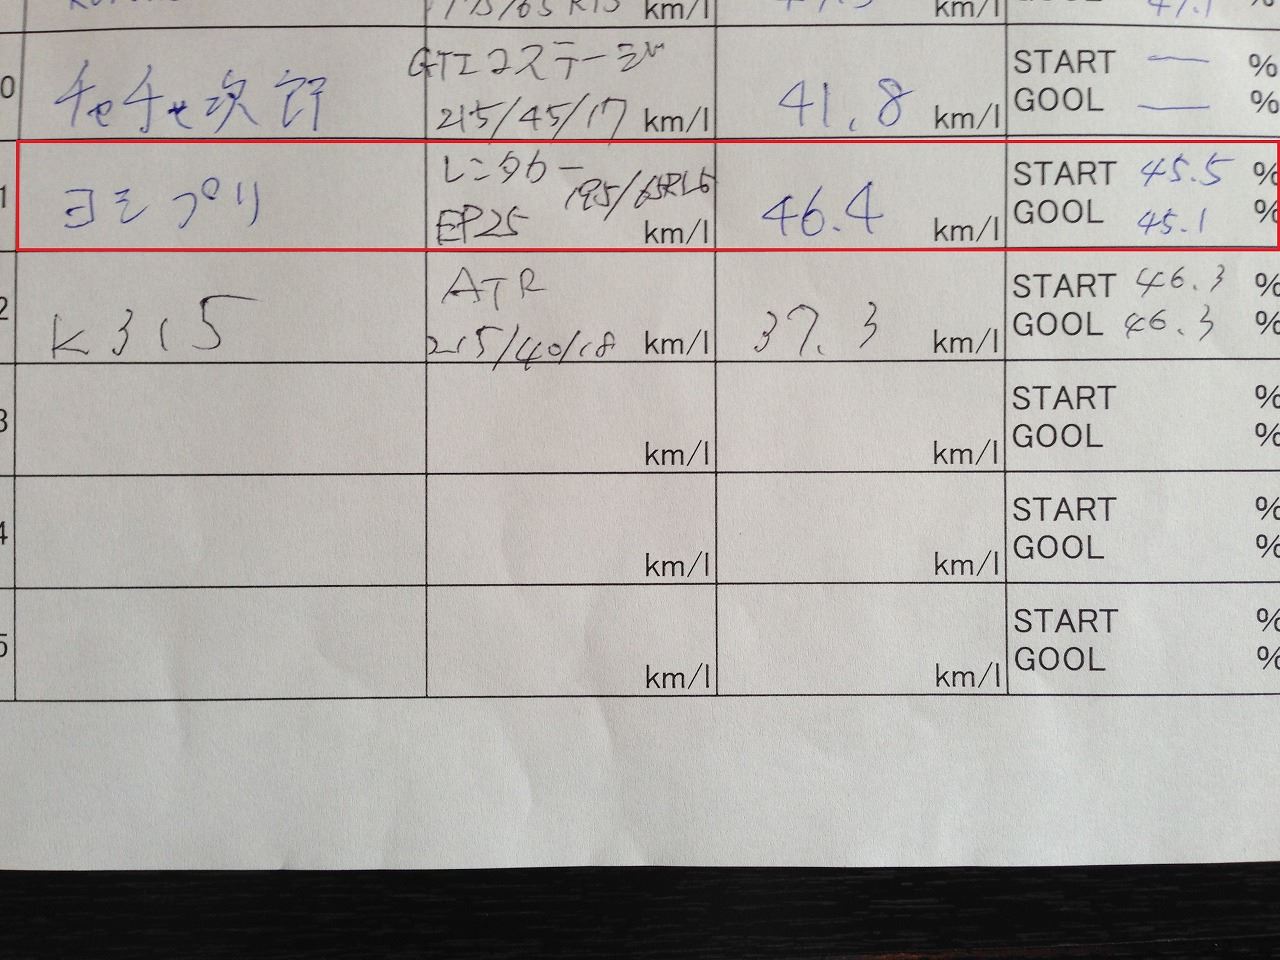 175/65R15 km/l km/l GOOL 47.1 %
0 チャチャ次郎 GTエコステージ 215/45/17 km/l 41.8 km/l START — %
GOOL — %
1 ヨミプリ レンタカー 195/65R15 EP25 km/l 46.4 km/l START 45.5 %
GOOL 45.1 %
2 K315 ATR 215/40/18 km/l 37.3 km/l START 46.3 %
GOOL 46.3 %
3 km/l km/l START %
GOOL %
4 km/l km/l START %
GOOL %
5 km/l km/l START %
GOOL %